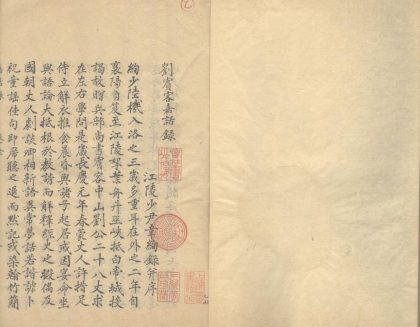 劉賓客嘉話錄
江陵少尹韋絢錄并序
絢少陸機入洛之三歲多重耳在外之二年自
襄陽負笈至江陵挐葉舟升巫峽抵白帝城投
謁故贈兵部尚書賓客中山劉公二十八丈求
在左右學問是歲長慶元年春蒙丈人許措足
侍立解衣推食晨昏與諸子起居或因宴命坐
與語論大抵根於教誘而解釋經史之暇偶及
國朝丈人劇談卿相新語異常夢話若諧謔卜
祝童謠佳句即席聽之退而默記或染翰竹簡